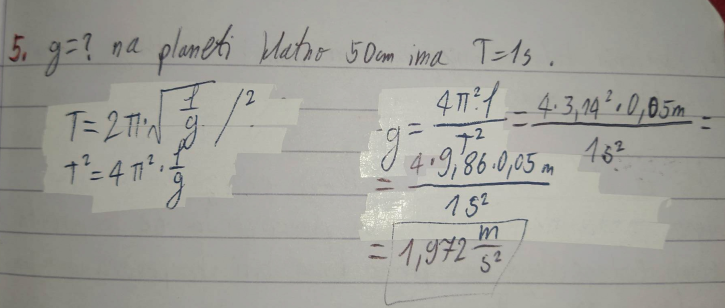 5. g=? na planeti klatno 50cm ima T=1s.
T=2π·√(l/g) /²
T²=4π²·l/g
g=4π²·l/T²=4·3,14²·0,05m/1s²=
=4·9,86·0,05m/1s²
=1,972 m/s²